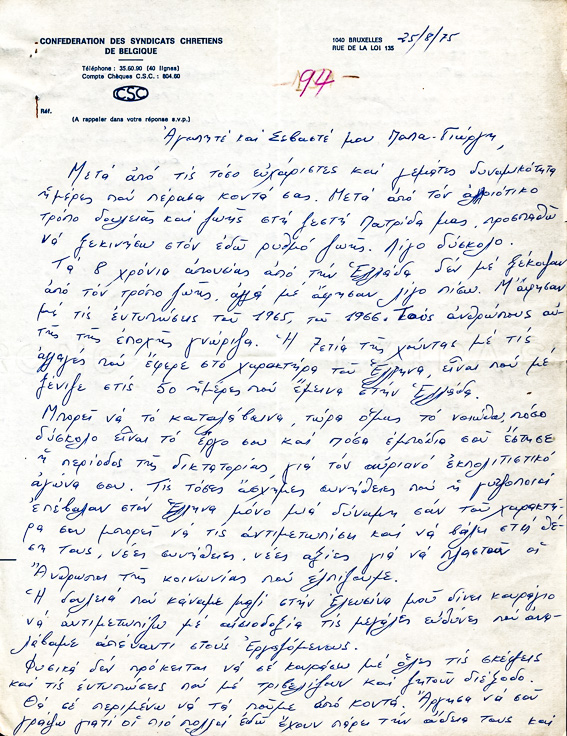 CONFEDERATION DES SYNDICATS CHRETIENS
DE BELGIQUE
1040 BRUXELLES 25/8/75
RUE DE LA LOI 135
Téléphone : 35.60.90 (40 lignes)
Compte Chèques C.S.C. : 804.60
94
CSC
Réf.
(A rappeler dans votre réponse s.v.p.)
Ἀγαπητέ καί Σεβαστέ μου Παπα-Γιώργη,
Μετά ἀπό τίς τόσο εὐχάριστες καί γεμάτες δυναμικότητα
ἡμέρες πού πέρασα κοντά σας. Μετά ἀπό τόν
τρόπο δουλειᾶς καί ζωῆς στή ζεστή Πατρίδα μας, προσπαθῶ
νά ξεκινήσω στόν ἐδῶ ρυθμό ζωῆς. Λίγο δύσκολο.
Τά 8 χρόνια ἀπουσίας ἀπό τήν Ἑλλάδα δέν μέ ξέκοψαν
ἀπό τόν τρόπο ζωῆς, ἀλλά μέ ἄφησαν λίγο πίσω. Μ' ἄφησαν
μέ τίς ἐντυπώσεις τοῦ 1965, τοῦ 1966. Τούς ἀνθρώπους αὐ-
τῆς τῆς ἐποχῆς γνώριζα. Ἡ 7ετία τῆς χούντας μέ τίς
ἀλλαγές πού ἔφερε στό χαρακτήρα τοῦ Ἕλληνα, εἶναι πού μέ
ξένισε στίς 50 ἡμέρες πού ἔμεινα στήν Ἑλλάδα.
Μπορεῖ νά τό καταλάβαινα, τώρα ὅμως τό νοιώθω, πόσο
δύσκολο εἶναι τό ἔργο σου καί πόσα ἐμπόδια σοῦ ἔστησε
ἡ περίοδος τῆς δικτατορίας γιά τόν αὐριανό ἐκπολιτιστικό
ἀγώνα σου. Τίς τόσες ἄσχημες συνήθειες πού ἡ
ἐπέβαλαν στόν Ἕλληνα μόνο μιά δύναμη σάν τοῦ χαρακτή-
ρα σου μπορεῖ νά τίς ἀντιμετωπίση καί νά βάλη στή θέ-
ση τους, νέες συνήθειες, νέες ἀξίες γιά νά πλαστοῦν οἱ
Ἄνθρωποι τῆς κοινωνίας πού ἐλπίζουμε.
Ἡ δουλειά πού κάναμε μαζί στήν Ἐλευσίνα μοῦ δίνει κουράγιο
νά ἀντιμετωπίζω μέ αἰσιοδοξία τίς μεγάλες εὐθύνες πού ἀνα-
λάβαμε ἀπέναντι στούς Ἐργαζόμενους.
Φυσικά δέν πρόκειται νά σέ κουράσω μέ ὅλες τίς σκέψεις
καί τίς ἐντυπώσεις πού μέ τριβελίζουν καί ζητοῦν διέξοδο.
Θά σέ περιμένω νά τά ποῦμε ἀπό κοντά. Ἄργησα νά σοῦ
γράψω γιατί οἱ πιό πολλοί ἐδῶ ἔχουν πάρει τήν ἄδεια τους καί